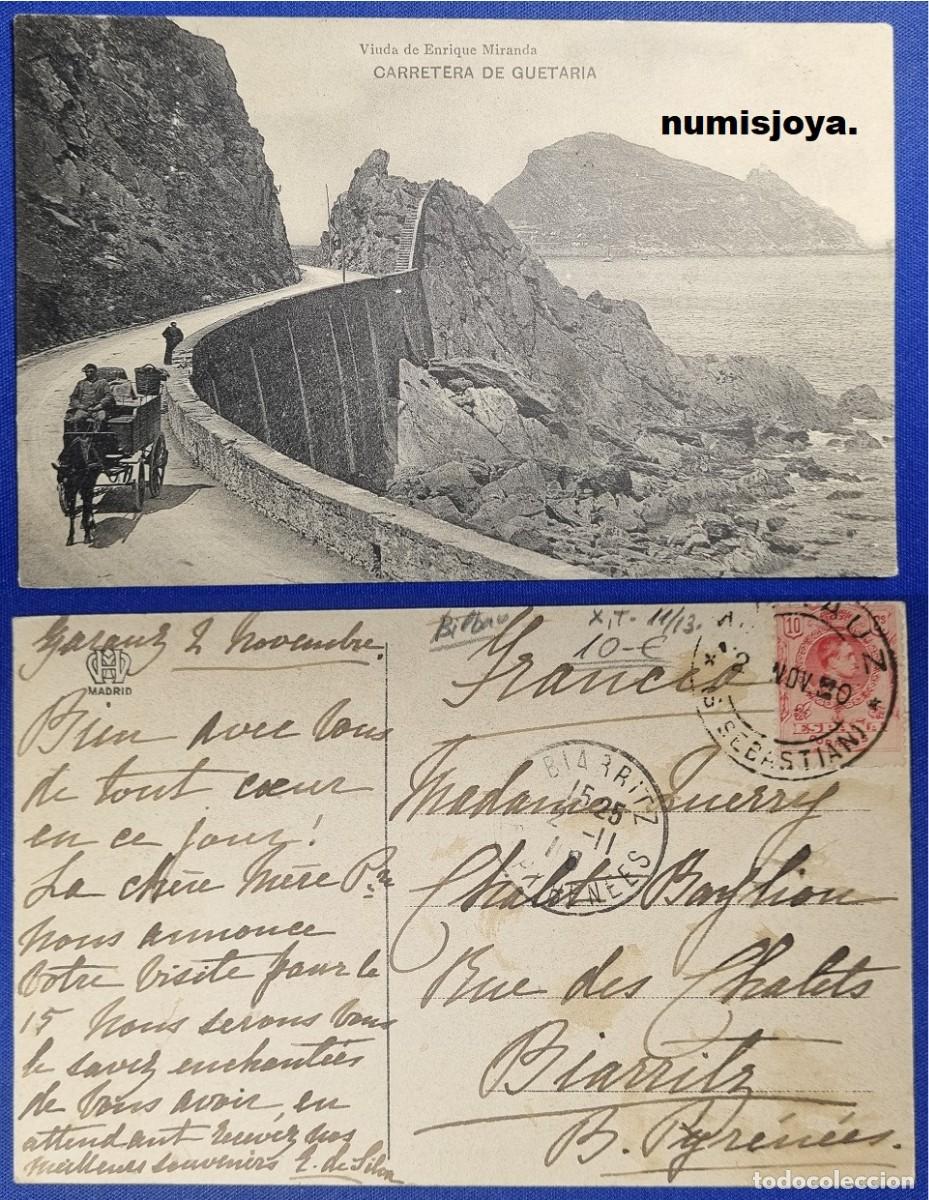 Viuda de Enrique Miranda
CARRETERA DE GUETARIA
numisjoya.
2 Novembre.
MADRID
Bien avec vous
de tout cœur
en ce jour!
La chère Mère
nous annonce
votre visite pour le
15 nous serons vous
le savez enchantées
de vous avoir, en
attendant recevez nos
meilleurs souvenirs E. de Silva
Bilbao
X.T. 11/13.
10-€
10
2 NOV
S. SEBASTIAN
BIARRITZ
15 25
2 -11
Madame Guerry
Chalet Baylion
Rue des Chalets
Biarritz
B. Pyrénées.
todocoleccion